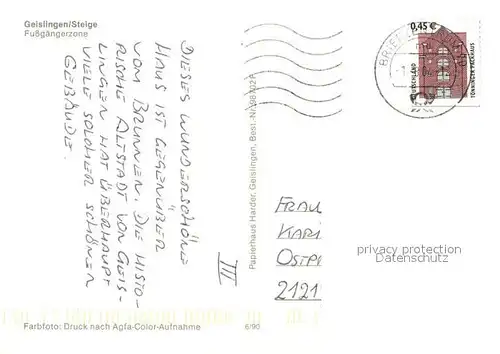 Geislingen/Steige
Fußgängerzone
DIESES WUNDERSCHÖNE
HAUS IST GEGENÜBER
VOM BRUNNEN. DIE HISTO-
RISCHE ALTSTADT VON GEIS-
LINGEN HAT ÜBERHAUPT
VIELE SOLCHER SCHÖNEN
GEBÄUDE.
III
Papierhaus Harder, Geislingen, Best.-Nr.
0,45 €
DEUTSCHLAND
TÖNNINGER PACKHAUS
BRIEF
FRAU
KARI
OSTPI
2121
privacy protection
Datenschutz
Farbfoto: Druck nach Agfa-Color-Aufnahme
6/90